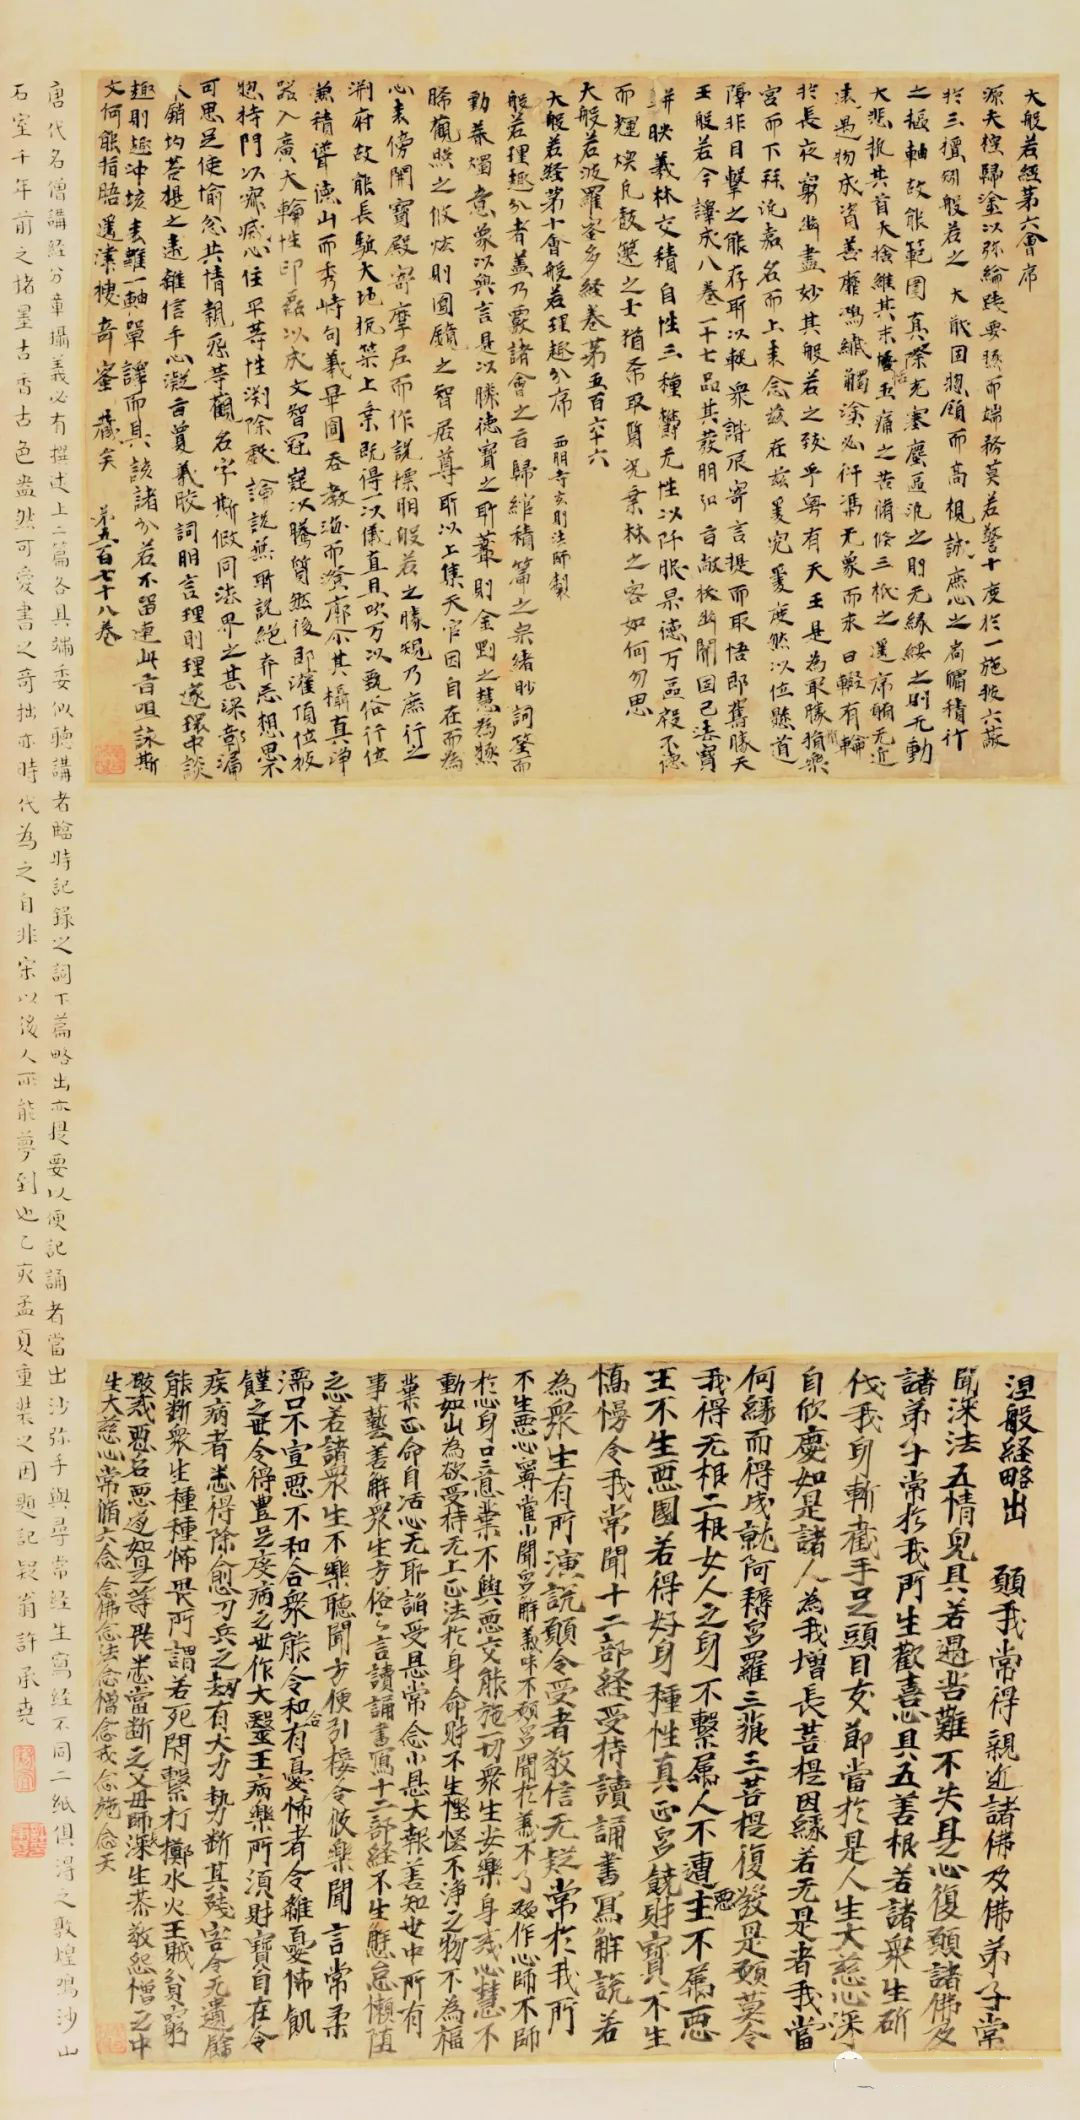 大般若經第六會序
源夫樸歸塗以弥綸踐要蹊而端務莫若警十度於一施披六蔽
於三檀朗般若之大猷因惣顧而高視誠庶心之崗𡺸積行
之樞軸故能範圍真際充塞塵區汎之則无緣綏之則无動
大悲抵其首大捨維其末
遠遇物成資善靡鴻纖觸塗必行馮无象而求日
於長夜窮幽盡妙其般若之致乎粵有天王是為㝡勝猶樂
宮而下拜洗嘉名而上来念茲在茲爰究爰度然以位懸道
障非目擊之能存聊以軫衆諮辰寄言提而取悟即舊勝天
王般若今譯成八卷一十七品其發明弘旨敞祕幽關因己法寶
駢映義林交積自性三種欝无性以阡眠果德万區
而輝煥凡鼓篋之士猶希取質况棄林之客如何勿思
大般若波羅蜜多經卷第五百六十六
大般若経第十會般若理趣分序 西明寺玄則法師製
般若理趣分者蓋乃覈諸會之旨歸綰積篇之宗緒眇詞筌而
動㬌燭意象以興言是以勝德寶之所藂則金剛之慧為極
晞觀照之攸炫則圓鏡之智居尊所以上集天宮因自在而為
心来傍開寶殿寄摩尼而作說摽明般若之勝規乃庶行之
渊府故能長驅大地抗策上乗既得一以儀真且吹万以甄俗行位
兼積聳德山而秀峙句義畢圓吞教海而澄廓尒其攝真淨
器入廣大輪性印磊以成文智冠㠑以騰質然後即灌頂位披
惣持門以寂㓕心住平等性滌除戱論說無所說絕弃忘想思不
可思足使愉忿共情親怨等觀名字斯假同法界之甚深障漏
未銷均菩提之遠離信手心凝旨夐義皎詞明言理則理邃環中談
趣則趣沖垓表雖一軸單譯而具該諸分若不留連此旨咀詠斯
文何能指晤遥津棲竒蜜藏矣 第五百七十八卷
涅般経略出 願我常得親近諸佛及佛弟子常
聞深法五情完具若遇苦難不失其心復願諸佛及
諸弟子常於我所生歡喜心具五善根若諸衆生斫
伐我身斬截手足頭目支節當於是人生大慈心深
自欣慶如是諸人為我増長菩提因縁若无是者我當
何縁而得成就阿耨多羅三藐三菩提復發是願莫令
我得无根二根女人之身不繫屬人不遭惡主不屬惡
王不生惡國若得好身種性真正多饒財寶不生
憍慢令我常聞十二部経受持讀誦書寫解説若
為衆生有所演説願令受者敬信无疑常於我所
不生惡心寧當小聞多解義味不願多聞於義不了願作心師不師
於心身口意業不與惡交能施一切衆生安樂身戒心慧不
動如山為欲受持无上正法於身命財不生慳恡不淨之物不為福
業正命自活心无耶諂受恩常念小恩大報善知世中所有
事藝善解衆生方俗之言讀誦書寫十二部経不生懈怠懶堕
之心若諸衆生不樂聽聞方便引接令彼樂聞言常柔
濡口不宣惡不和合衆能令和合有憂怖者令離憂怖飢
饉之世令得豊足疫病之世作大醫王病藥所須財寶自在令
疾病者悉得除愈刀兵之劫有大力勢断其殘害令无遺餘
能断衆生種種怖畏所謂若死閉繫打擲水火王賊貧窮
破戒惡名惡道如是等畏悉當断之父母師長深生恭敬怨憎之中
生大慈心常脩六念念佛念法念僧念戒念施念天
唐代名僧講経分章攝義必有撰述上二篇各具端委似聴講者臨時記録之詞下篇略出亦提要以便記誦者當出沙弥手與尋常経生寫経不同二紙俱得之敦煌鳴沙山
石室千年前之楮墨古香古色盎然可愛書之奇拙亦時代為之自非宋以後人所能夢到也乙亥孟夏重裝之因題記疑翁許承堯